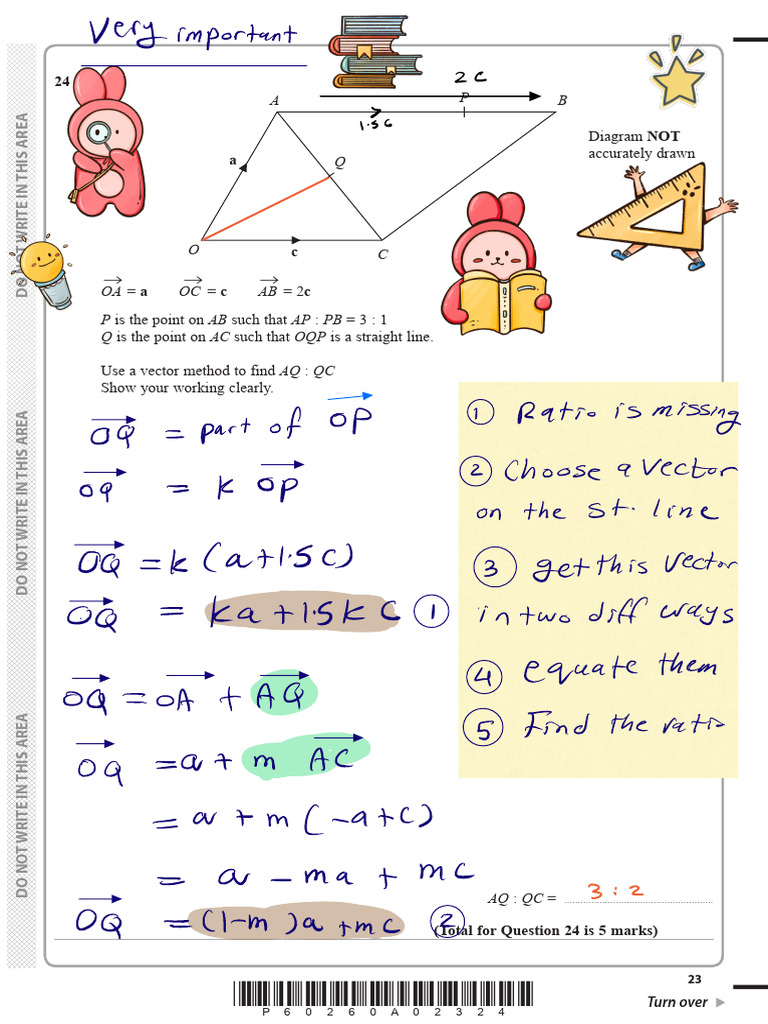 Very important
24
2c
A
P
B
1.5c
Diagram NOT
accurately drawn
a
Q
O
c
C
OA = a OC = c AB = 2c
P is the point on AB such that AP : PB = 3 : 1
Q is the point on AC such that OQP is a straight line.
Use a vector method to find AQ : QC
Show your working clearly.
OQ = part of OP
OQ = k OP
OQ = k (a+1.5c)
OQ = ka+1.5kc ①
OQ = OA + AQ
OQ = a + m AC
= a + m (-a+c)
= a - ma + mc
OQ = (1-m)a + mc ②
① Ratio is missing
② Choose a vector
on the st. line
③ get this vector
in two diff ways
④ equate them
⑤ Find the ratio
AQ : QC = 3 : 2
(Total for Question 24 is 5 marks)
DO NOT WRITE IN THIS AREA
DO NOT WRITE IN THIS AREA
DO NOT WRITE IN THIS AREA
23
P60260A02324
Turn over